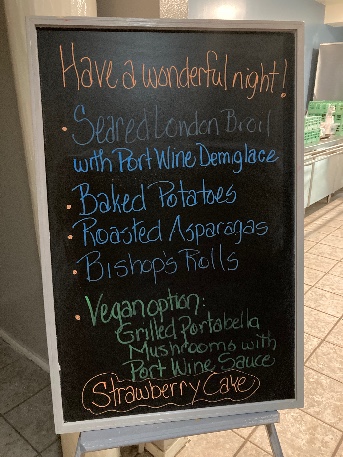 Have a wonderful night!
• Seared London Broil
with Port Wine Demiglace
• Baked Potatoes
• Roasted Asparagas
• Bishop's Rolls
• Vegan option:
Grilled Portabella
Mushrooms with
Port Wine Sauce
Strawberry Cake